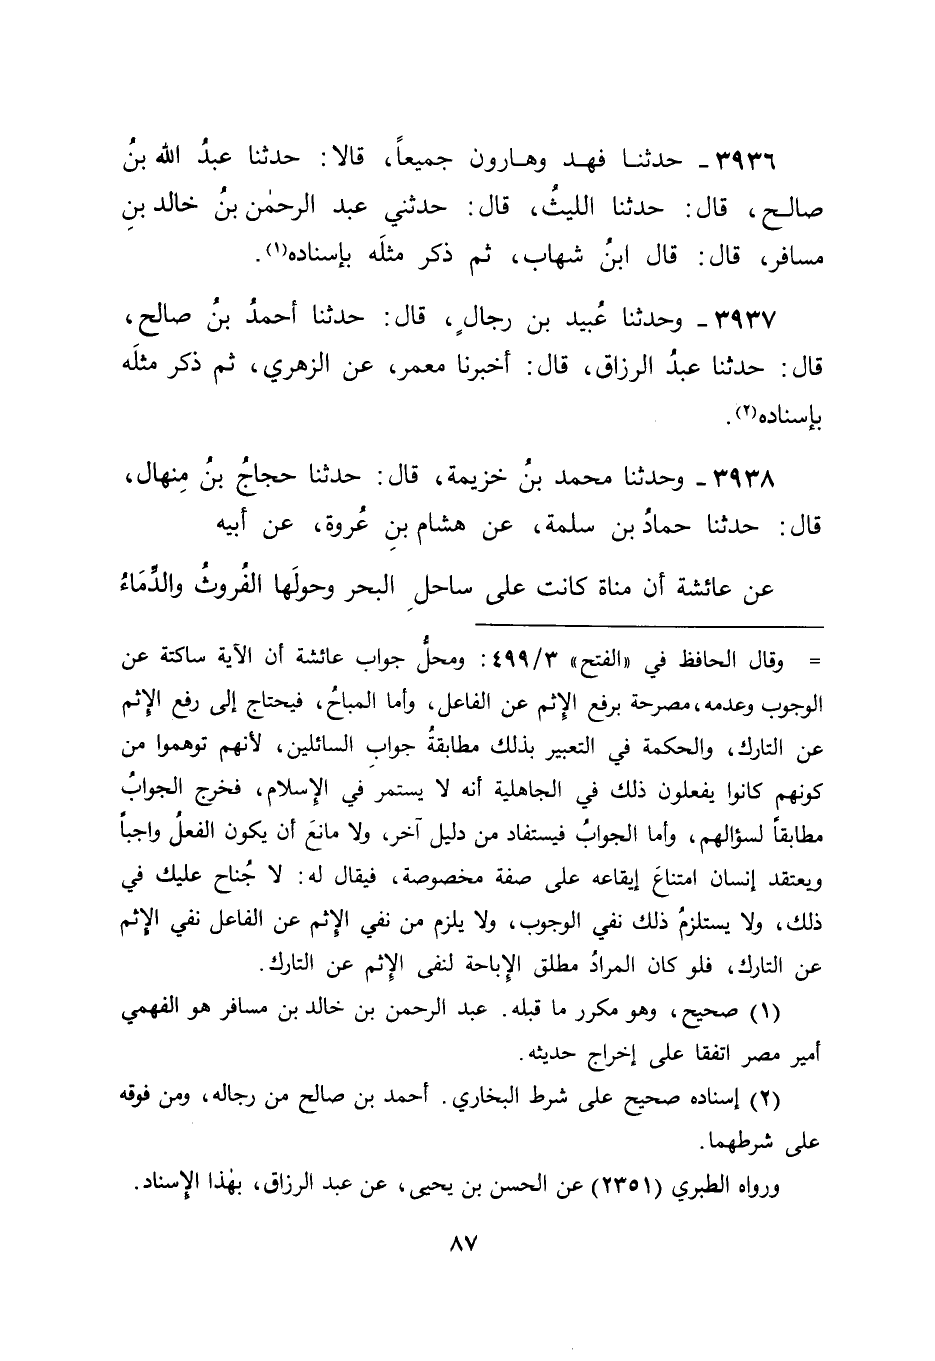 ٣٩٣٦ ـ حدثنـا فهـد وهـارون جميعاً، قالا: حدثنا عبدُ الله بنُ
صالـح، قال: حدثنا الليثُ، قال: حدثني عبد الرحمٰن بنُ خالد بنِ
مسافر، قال: قال ابنُ شهاب، ثم ذكر مثلَه بإسناده(١).
٣٩٣٧ ـ وحدثنا عُبيد بن رجالٍ، قال: حدثنا أحمدُ بنُ صالح،
قال: حدثنا عبدُ الرزاق، قال: أخبرنا معمر، عن الزهري، ثم ذكر مثلَه
بإسناده(٢).
٣٩٣٨ ـ وحدثنا محمد بنُ خزيمة، قال: حدثنا حجاجُ بنُ مِنهال،
قال: حدثنا حمادُ بن سلمة، عن هشام بنِ عُروة، عن أبيه
عن عائشة أن مناة كانت على ساحلِ البحر وحولَها الفُروثُ والدِّمَاءُ
= وقال الحافظ في «الفتح» ٤٩٩/٣: ومحلُّ جواب عائشة أن الآية ساكتة عن
الوجوب وعدمه، مصرحة برفع الإثم عن الفاعل، وأما المباحُ، فيحتاج إلى رفع الإثم
عن التارك، والحكمة في التعبير بذلك مطابقةُ جوابِ السائلين، لأنهم توهموا من
كونهم كانوا يفعلون ذلك في الجاهلية أنه لا يستمر في الإسلام، فخرج الجوابُ
مطابقاً لسؤالهم، وأما الجوابُ فيستفاد من دليل آخر، ولا مانعَ أن يكون الفعلُ واجباً
ويعتقد إنسان امتناعَ إيقاعه على صفة مخصوصة، فيقال له: لا جُناح عليك في
ذلك، ولا يستلزمُ ذلك نفي الوجوب، ولا يلزم من نفي الإثم عن الفاعل نفي الإثم
عن التارك، فلو كان المرادُ مطلق الإباحة لنفى الإثم عن التارك.
(١) صحيح، وهو مكرر ما قبله. عبد الرحمن بن خالد بن مسافر هو الفهمي
أمير مصر اتفقا على إخراج حديثه.
(٢) إسناده صحيح على شرط البخاري. أحمد بن صالح من رجاله، ومن فوقه
على شرطهما.
ورواه الطبري (٢٣٥١) عن الحسن بن يحيى، عن عبد الرزاق، بهٰذا الإسناد.
٨٧